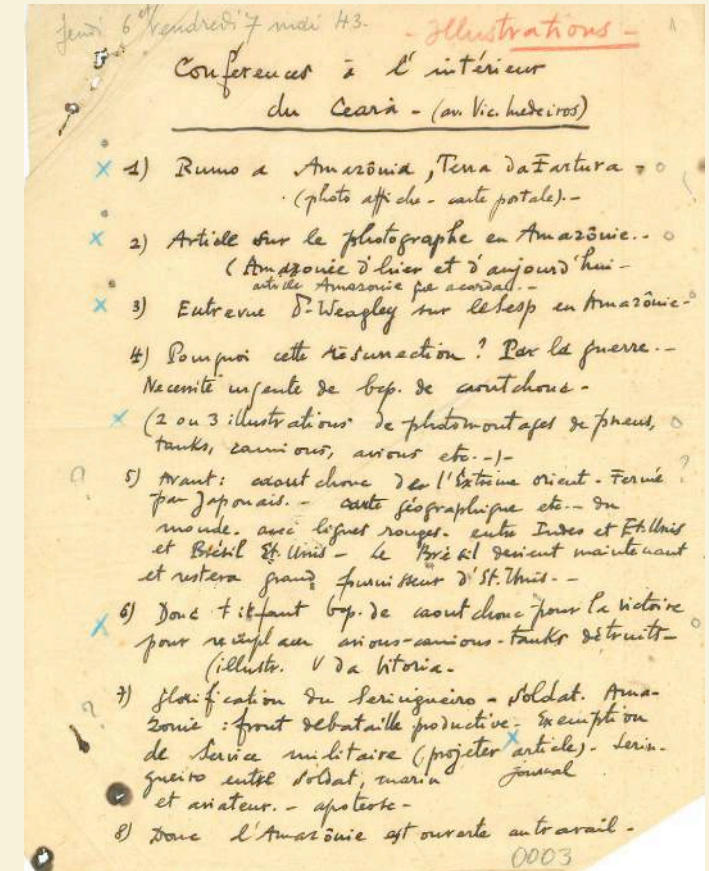 Jeudi 6 et vendredi 7 mai 43.
- Illustrations - 1
Conferences à l'intérieur
du Ceará - (av. Vic. Medeiros)
x 1) Rumo a Amazônia, Terra da Fartura - o
(photo affiche - carte postale).-
x 2) Article sur le photographe en Amazônie.- o
(Amazonie d'hier et d'aujourd'hui -
article Amazonie que acordou.-
x 3) Entrevue Dr Weagley sur le Sesp en Amazônie-
4) Pourquoi cette résurrection? Par la guerre.-
Necessité urgente de bcp. de caoutchouc -
x (2 ou 3 illustrations de photomontages de pneus, o
tanks, camions, avions etc.-)-
? 5) Avant: caoutchouc de l'Extrême orient - Fermé ?
par Japonais.- carte géographique etc.- du
monde. avec lignes rouges. entre Indes et Et. Unis
et Brésil Et. Unis - Le Brésil devient maintenant
et restera grand fournisseur d'Et. Unis.-
x 6) Donc faut bcp. de caoutchouc pour la victoire o
pour remplacer avions-camions-tanks détruits-
(illustr. V da Vitoria-
? 7) Glorification du Seringueiro - Soldat. Ama-
zonie: front de bataille productive. Exemption
de Service militaire (projeter x article)- Serin-
gueiro entre soldat, marin journal
et aviateur.- apoteose-
8) Donc l'Amazônie est ouverte au travail-
0003